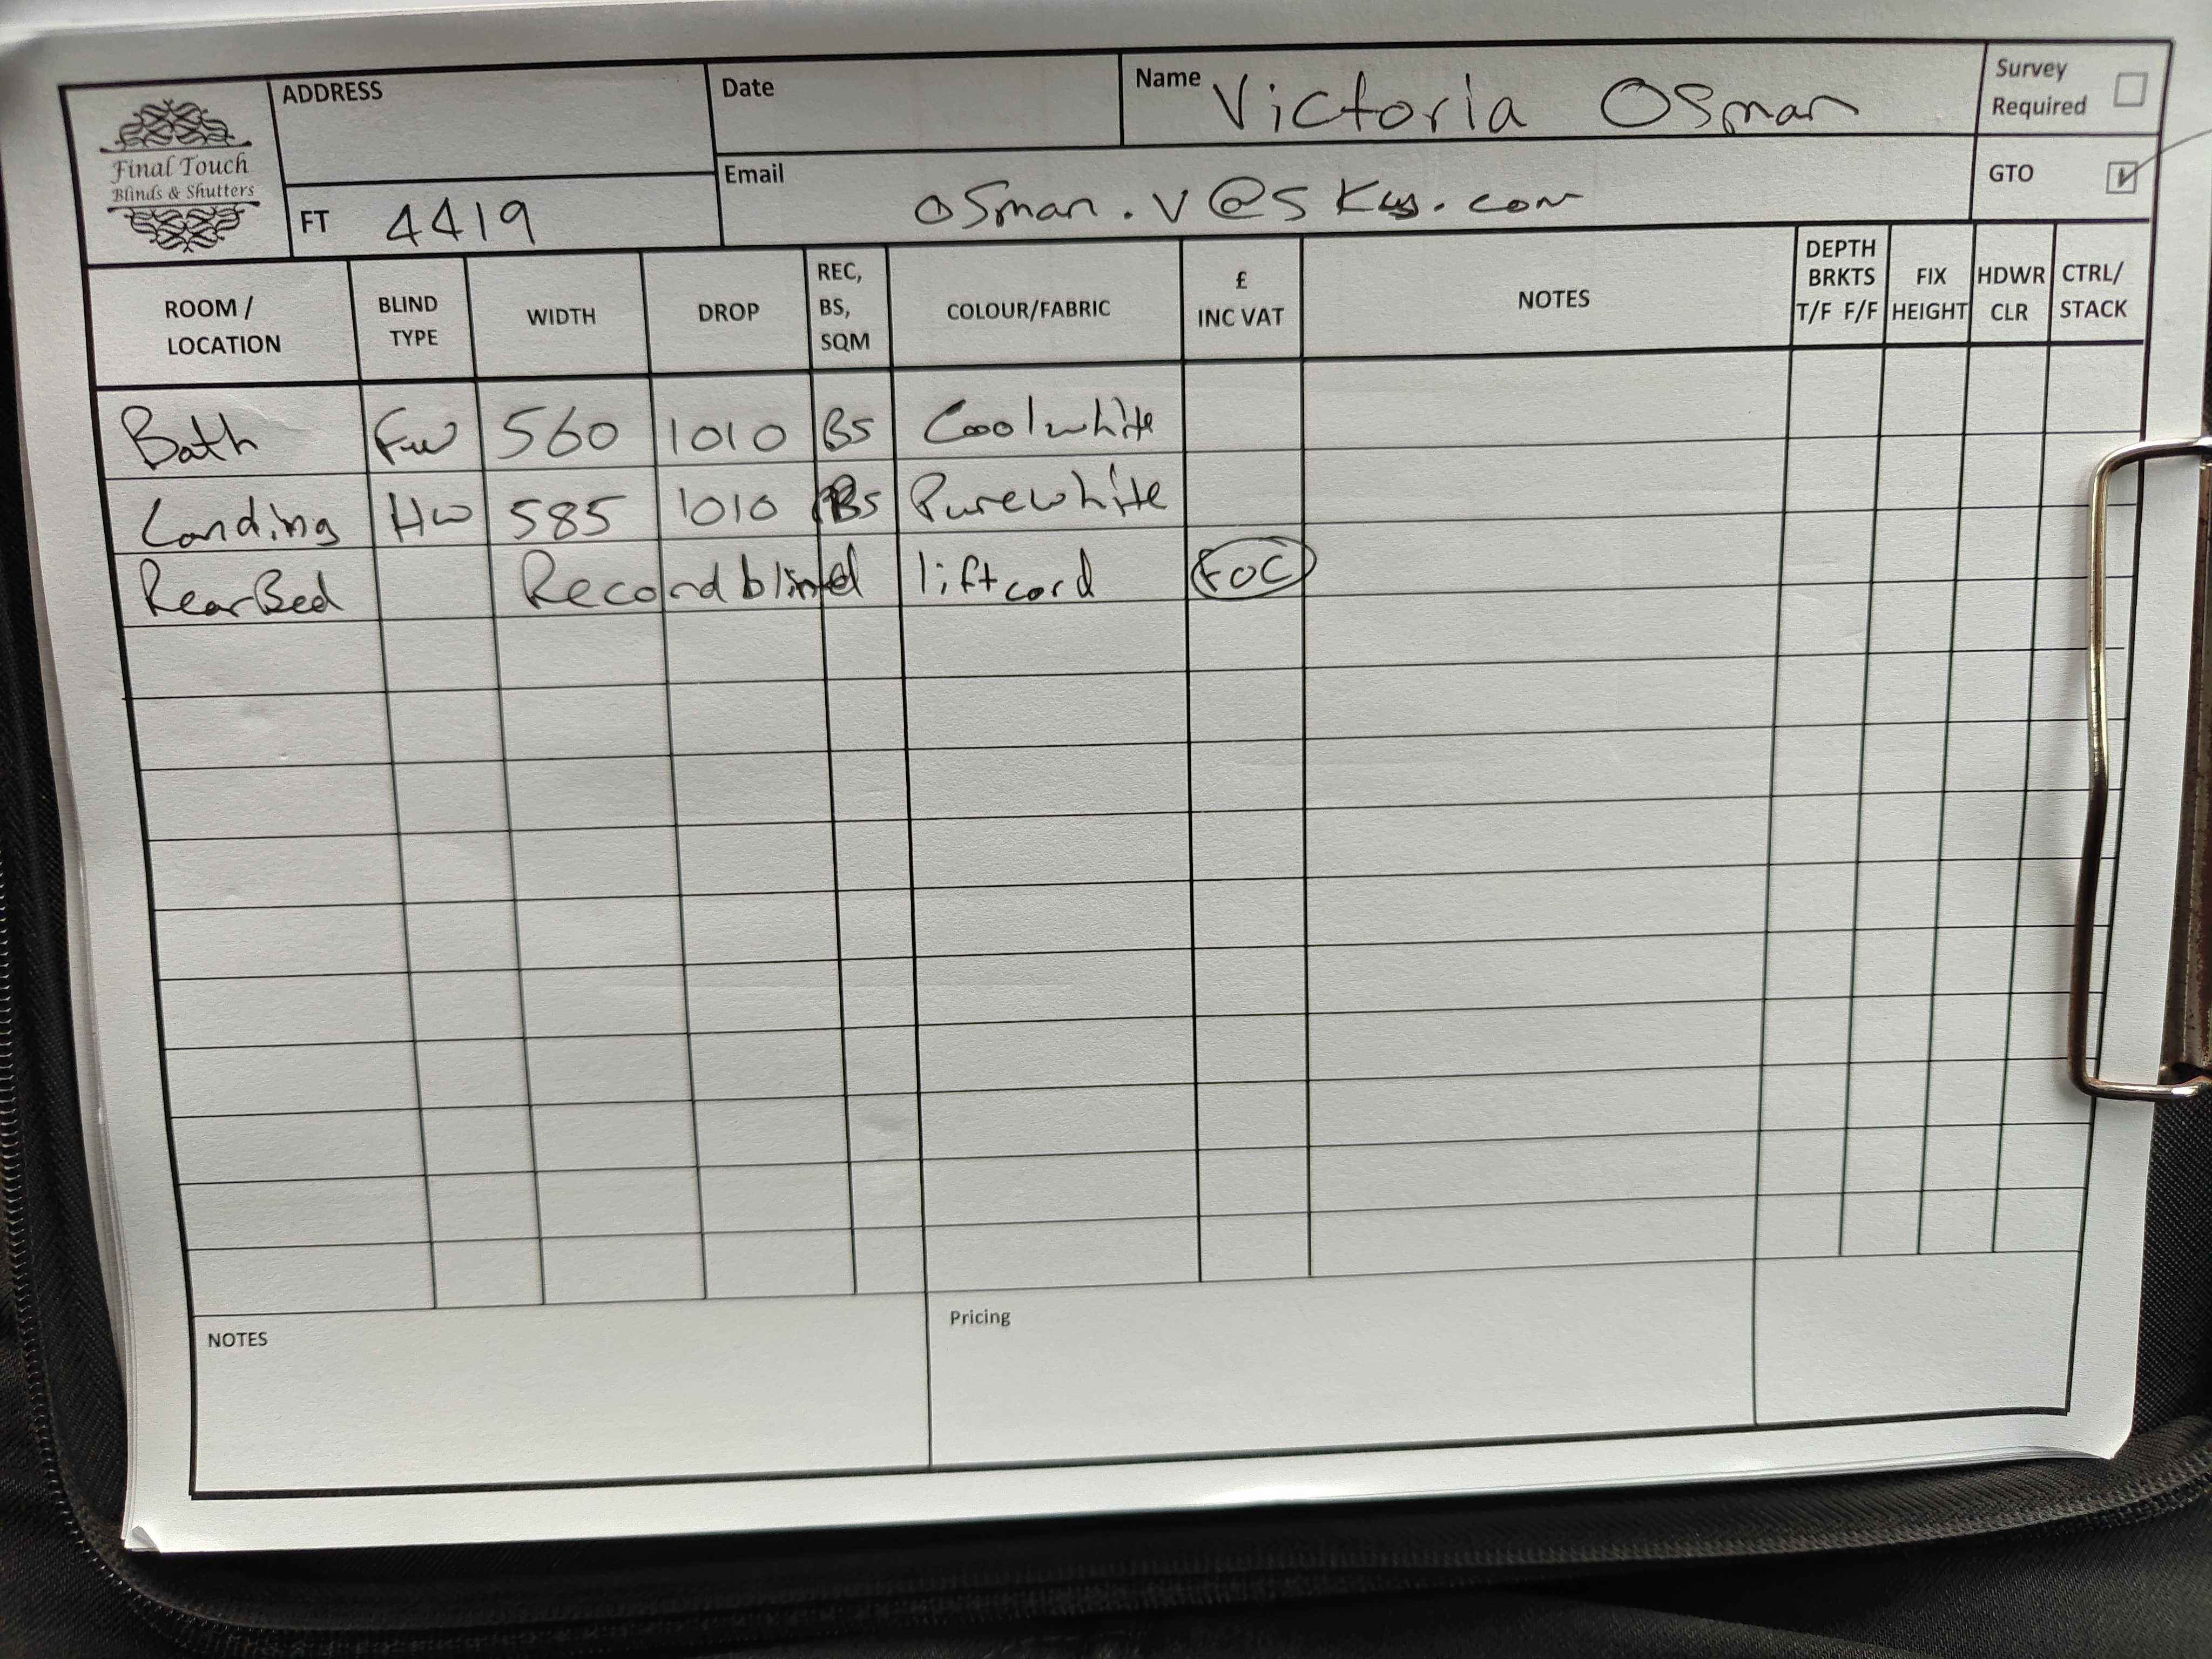 Final Touch
Blinds & Shutters
ADDRESS
FT 4419
Date
Name Victoria Osman
Email
Survey
Required
GTO
ROOM /
LOCATION
BLIND
TYPE
WIDTH
DROP
REC,
BS,
SQM
COLOUR/FABRIC
£
INC VAT
NOTES
DEPTH
BRKTS
T/F F/F
FIX
HEIGHT
HDWR
CLR
CTRL/
STACK
Bath FW 560 1010 BS Coolwhite
Landing HW 585 1010 BS Purewhite
Rear Bed Recond blind lift cord FOC
NOTES
Pricing